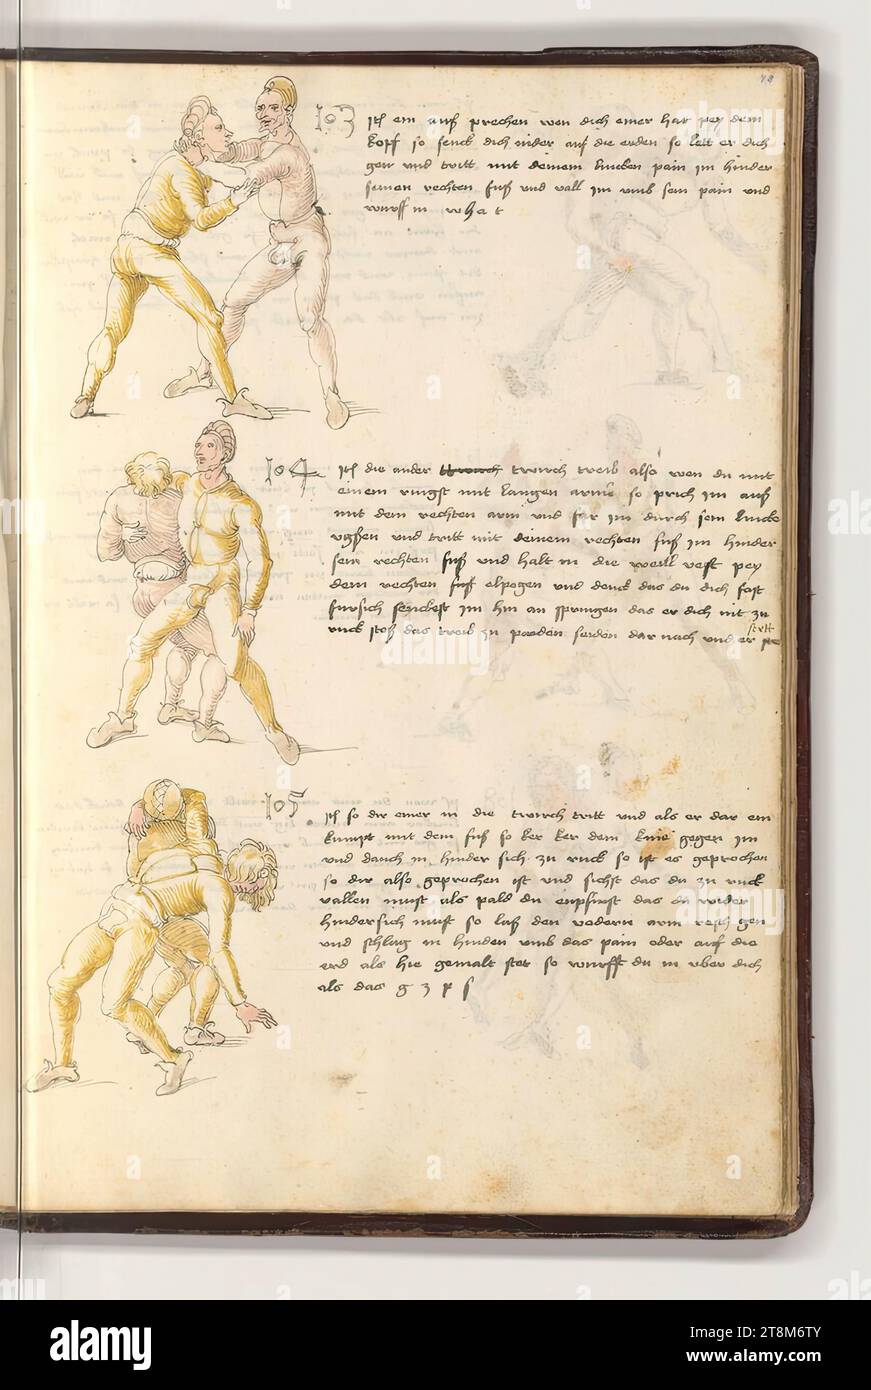 103 Itm ein auß prechen wen dich einer hat pey dem
kopf so senck dich nider auf die erden so lest er dich
gen und tritt mit deinem lincken pain im hinder
seinen rechten fuß und vall im umb sein pain und
wurff in
104 Itm die ander twirch treib also wen du mit
einem ringst mit langen arme so prich im auß
mit dem rechten arm und far im durch sein lincke
ugßen und tritt mit deinem rechten fuß im hinder
sein rechten fuß und halt in die weil vest pey
dem rechten elpogen und denck das du dich fast
fursich senckest im hin an springen das er dich nit zu
ruck stoß das treib zu paiden seiden dar nach und er stett
105 Itm so dir einer in die twirch tritt und als er dar ein
kumpt mit dem fuß so ker ker dem knie gegen im
und dauch in hinder sich zu ruck so ist es geprochen
so dir also geprochen ist und sichst das du zu ruck
vallen must als pald du enpfinst das du wider
hindersich must so laß den vodern arm resch gen
und schlag in hinden umb das pain oder auf die
erd als hie gemalt stet so wurfft du in uber dich
als das g 3 x s
alamy
Image ID: 2T8M6TY
www.alamy.com